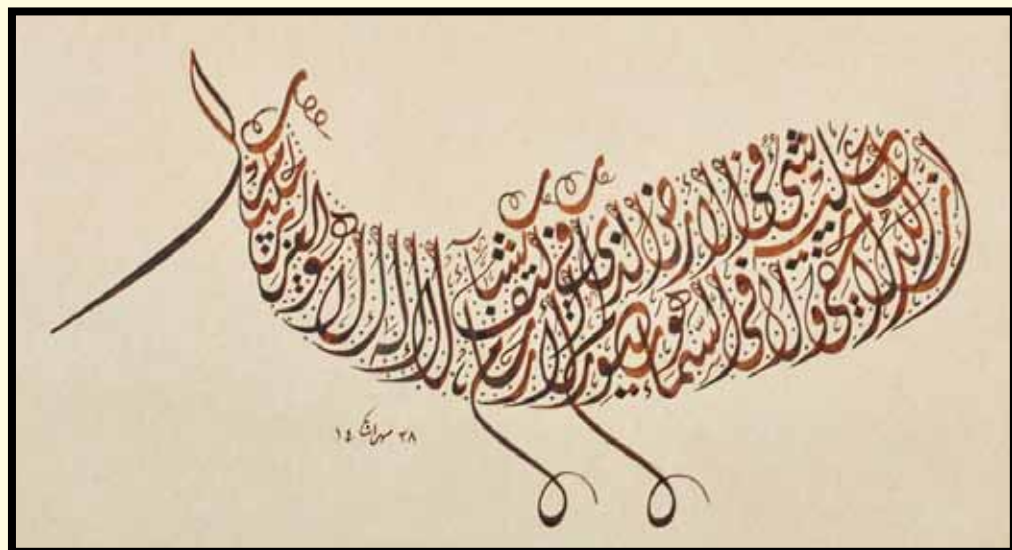 ان الله لا يخفى عليه شيء في الارض ولا في السماء هو الذي يصوركم في الارحام كيف يشاء لا اله الا هو العزيز الحكيم